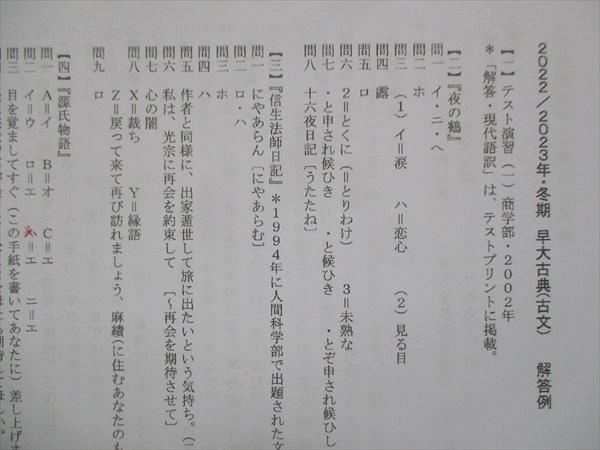 2022/2023年・冬期 早大古典(古文) 解答例
【一】テスト演習(一)商学部・2002年
*「解答・現代語訳」は、テストプリントに掲載。
【二】『夜の鶴』
問一 イ・ニ・ヘ
問二 ホ
問三 (1)イ=涙 ハ=恋心 (2)見る目
問四 露
問五 ロ
問六 2=とくに(=とりわけ) 3=未熟な
問七 ・と申され候ひき ・と候ひき ・とぞ申され候ひし
問八 十六夜日記[うたたね]
【三】『信生法師日記』*1994年に人間科学部で出題された文
問一 にやあらん[にやあらむ]
問二 ロ・ハ
問三 ホ
問四 ハ
問五 作者と同様に、出家遁世して旅に出たいという気持ち。(二
問六 私は、光宗に再会を約束して [~再会を期待させて]
問七 心の闇
問八 X=裁ち Y=縁語
Z=戻って来て再び訪れましょう、麻績(に住むあなたのも
問九 ロ
【四】『源氏物語』
問一 A=イ B=オ C=エ
問二 イ=ウ ロ=エ ハ=エ ニ=エ
問三 目を覚ましてすぐ(この手紙を書いてあなたに)差し上げま